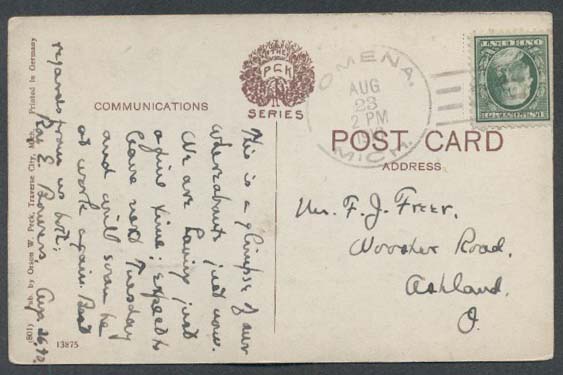 IN THE
PCK
SERIES
COMMUNICATIONS
OMENA.
AUG
23
2 PM
MICH.
POST CARD
ADDRESS
This is a glimpse of our
whereabouts just now.
We are having just
a fine time; expect to
leave next Tuesday
and will soon be
at work again. Best
regards from us both;
Mr. F. J. Freer,
Wooster Road,
Ashland,
O.
(801) Pub. by Orson W. Peck, Traverse City, Mich. Printed in Germany
13875